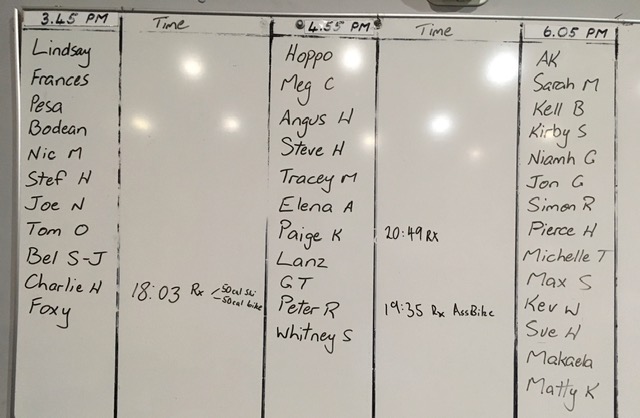 3.45 PM Time 4.55 PM Time 6.05 PM
Lindsay Hoppo AK
Frances Meg C Sarah M
Pesa Angus H Kell B
Bodean Steve H Kirby S
Nic M Tracey M Niamh G
Stef H Elena A Jon G
Joe N Paige K 20:49 Rx Simon R
Tom O Lanz Pierce H
Bel S-J GT Michelle T
Charlie H 18:03 Rx 50cal ski Peter R 19:35 Rx AssBike Max S
- 50cal bike
Foxy Whitney S Kev W
Sue H
Makaela
Matty K